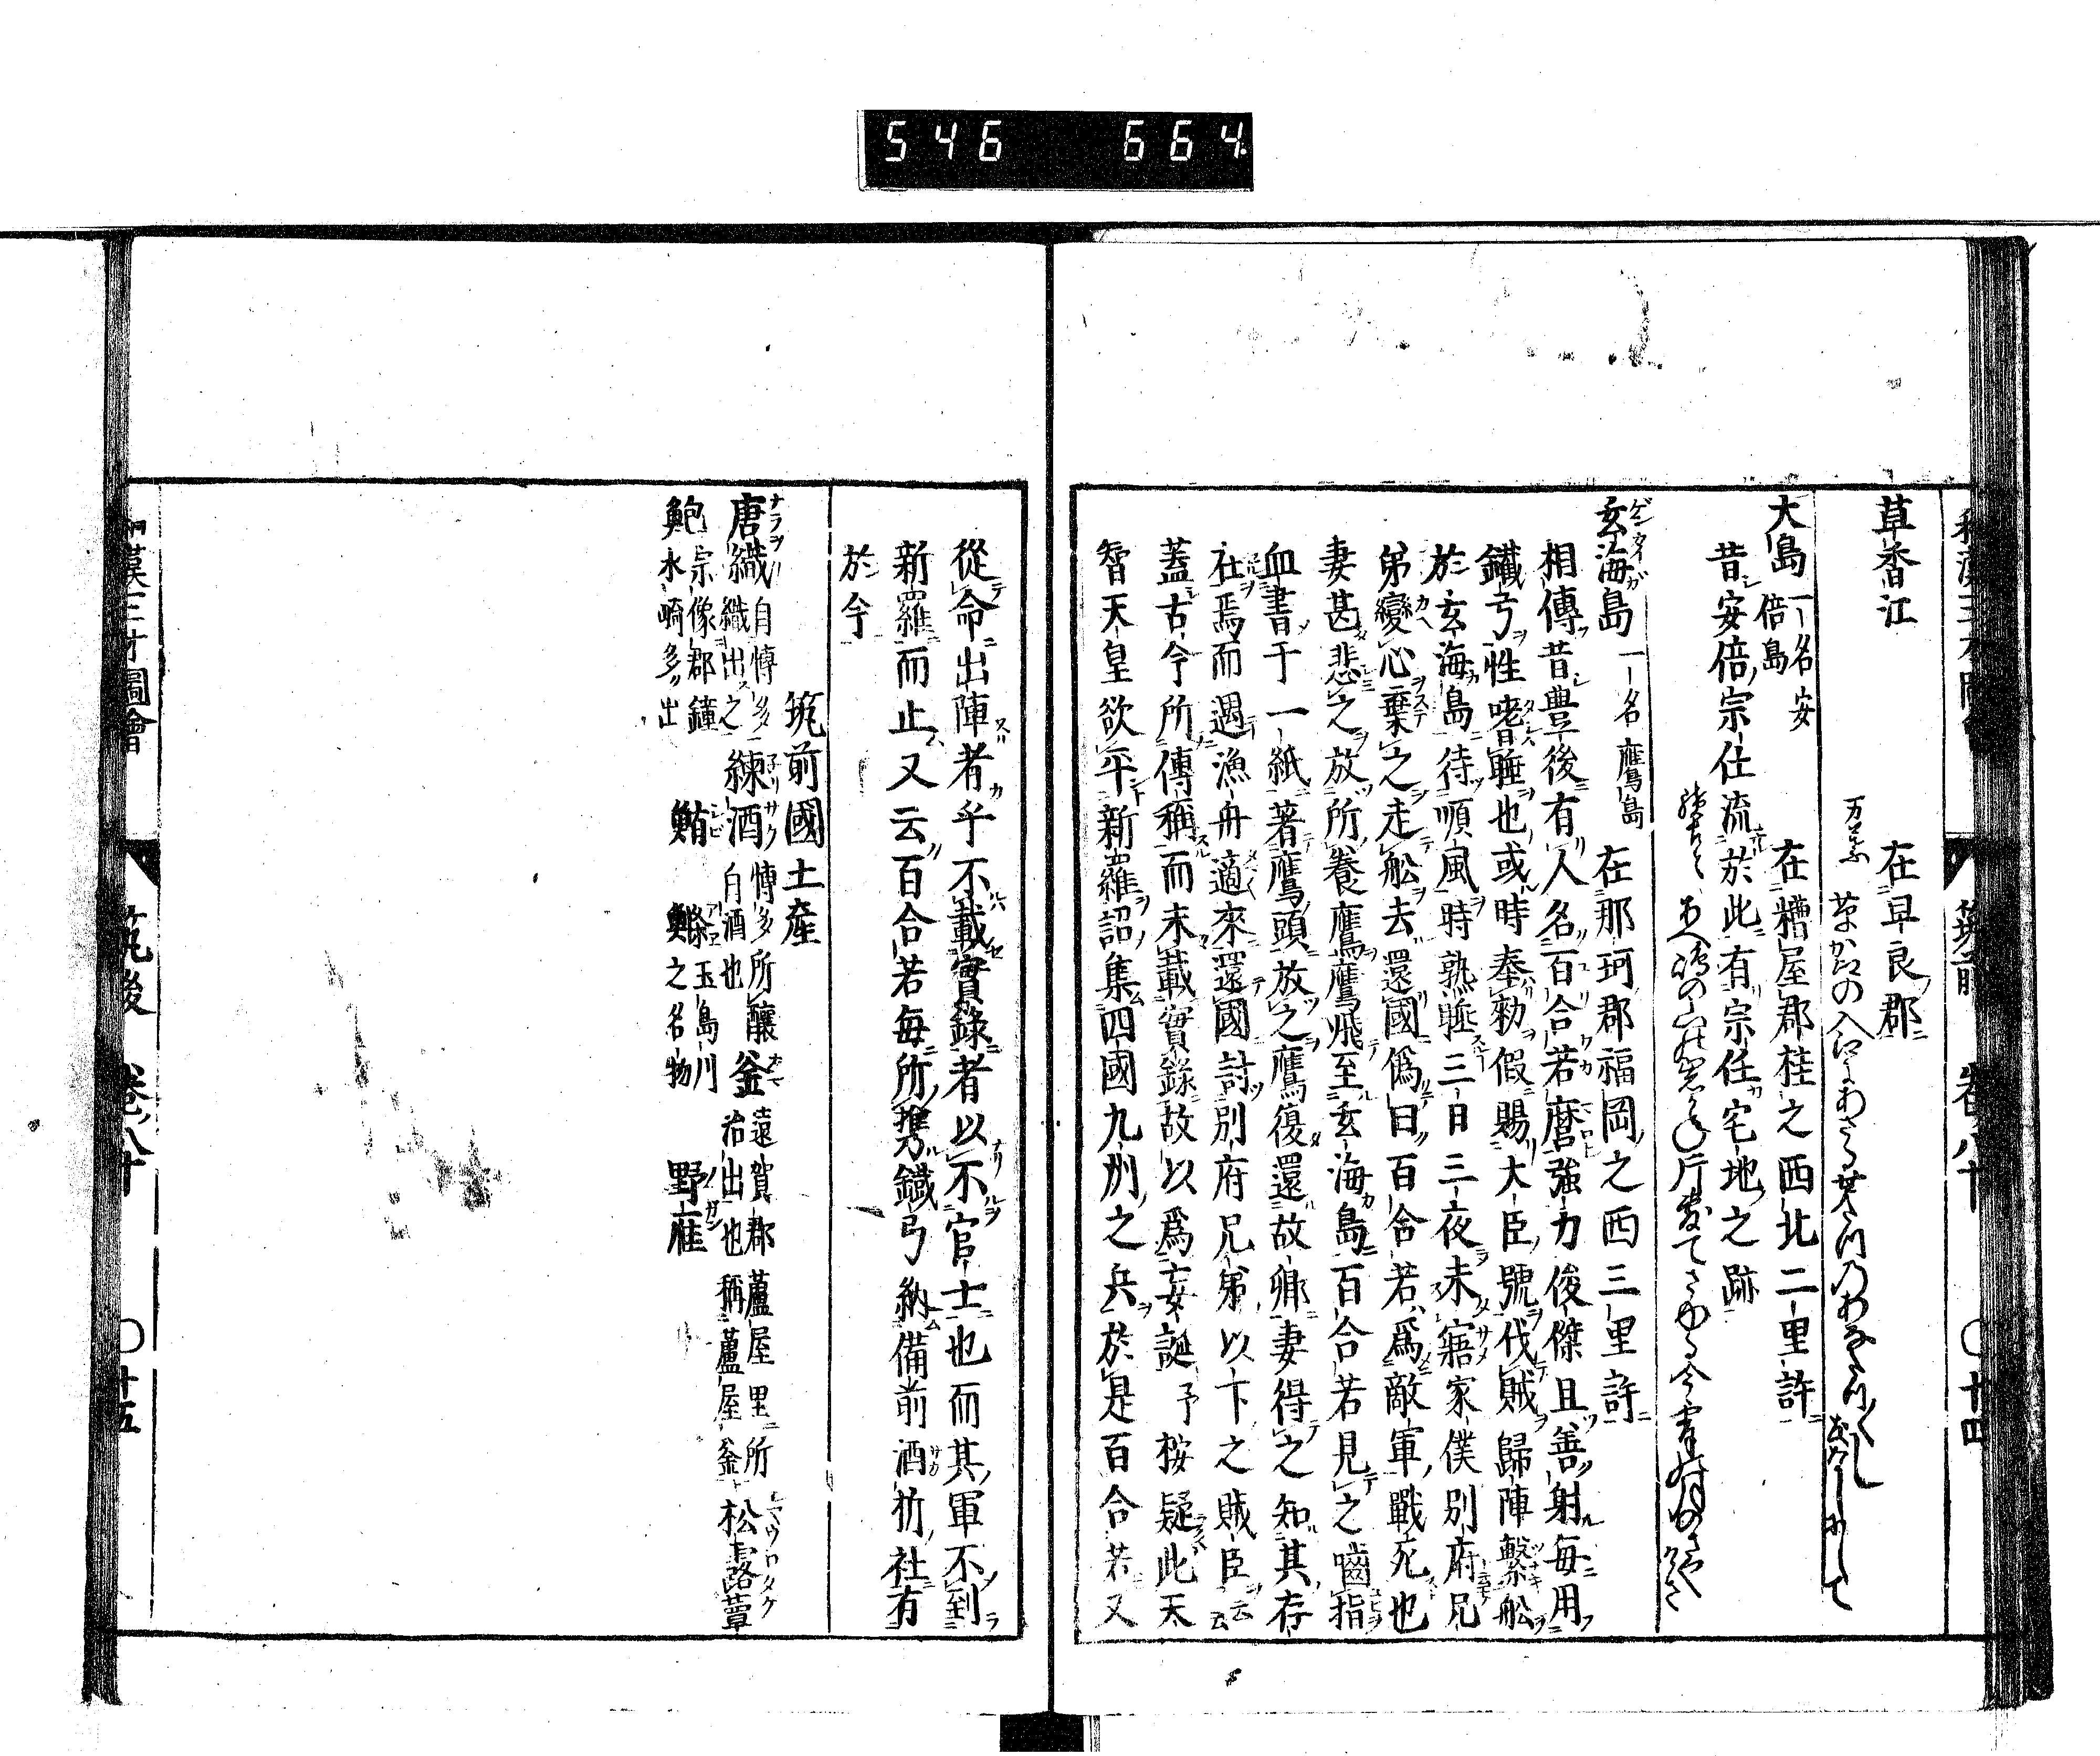 546 664
筑前 卷八十 〇十四
草香江 在早良郡
大島 一名安倍島 在糟屋郡桂之西北二里許
昔安倍宗任流於此有宗任宅地之跡
玄海島 一名鷹島 在那珂郡福岡之西三里許
相傳昔豊後有人名百合若麿強力俊傑且善射毎用
鐵弓性嗜睡也或時奉勅假賜大臣號伐賊歸陣繫舩
於玄海島待順風時熟睡三日三夜未寤家僕別府兄
弟變心棄之走舩去還國僞曰百合若爲敵軍戰死也
妻甚悲之放所養鷹鷹飛至玄海島百合若見之嚙指
血書于一紙著鷹頭放之鷹復還故鄕妻得之知其存
社焉而遇漁舟適來還國討別府兄弟以下之賊臣云云
蓋古今所傳稱而未載實錄故以爲妄誕予按疑此天
智天皇欲平新羅詔集四國九州之兵於是百合若又
從命出陣者乎不載實錄者以不官士也而其軍不到
新羅而止又云百合若毎所攜鐵弓納備前酒折社有
於今
筑前國土産
唐織 自博多織出之 練酒 博多所釀白酒也 釜 遠賀郡蘆屋里所冶出也稱蘆屋釜 松露蕈
鮑 宗像郡鐘水崎多出 鮪 鰷 玉島川之名物 野雁
和漢三才圖會 筑後 卷八十 〇十五